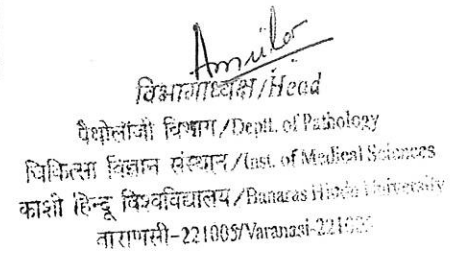 विभागाध्यक्ष/Head
पैथोलॉजी विभाग/Deptt. of Pathology
चिकित्सा विज्ञान संस्थान/Inst. of Medical Sciences
काशी हिन्दू विश्वविद्यालय/Banaras Hindu University
वाराणसी-221005/Varanasi-221005